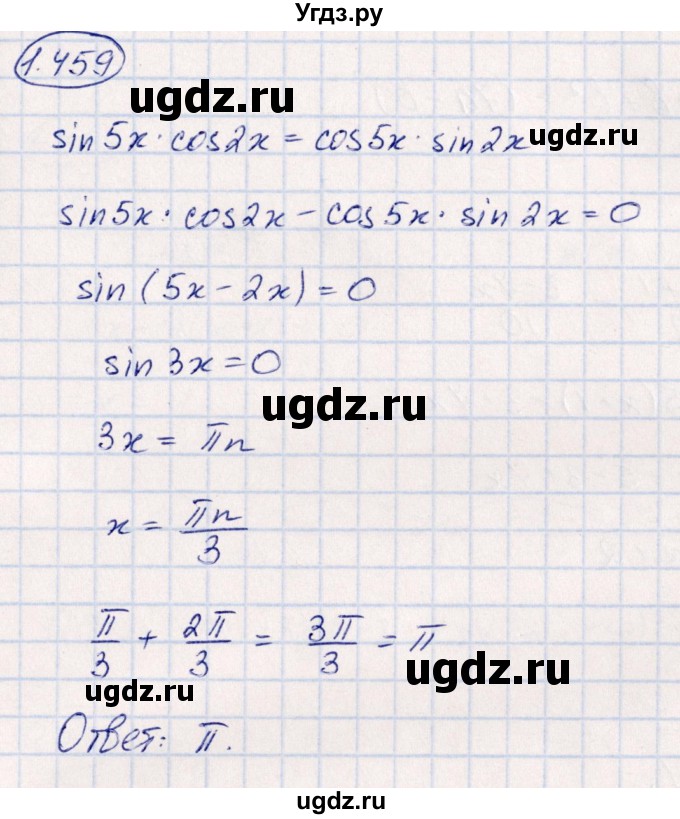 Угдз.ру
1.459
ugdz.ru
sin5x · cos2x = cos5x · sin2x
sin5x · cos2x - cos5x · sin2x = 0
sin(5x - 2x) = 0
sin3x = 0
ugdz.ru
3x = πn
x = πn/3
π/3 + 2π/3 = 3π/3 = π
ugdz.ru
ugdz.ru
Ответ: π.
ugdz.ru